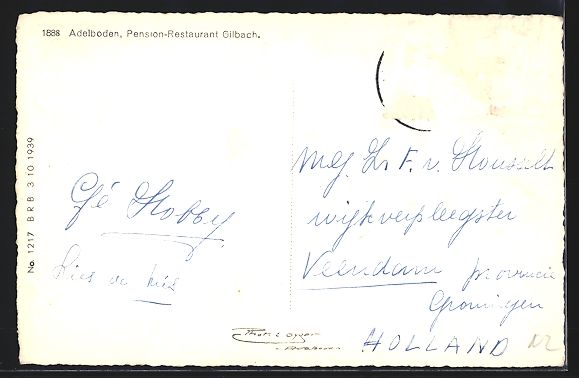 1888 Adelboden, Pension-Restaurant Gilbach.
No. 1217 B R B 3 10 1939
Gé Hobby
Lies de
Mej. Zr F. v.
wijkverpleegster
Veendam provincie
Groningen
HOLLAND